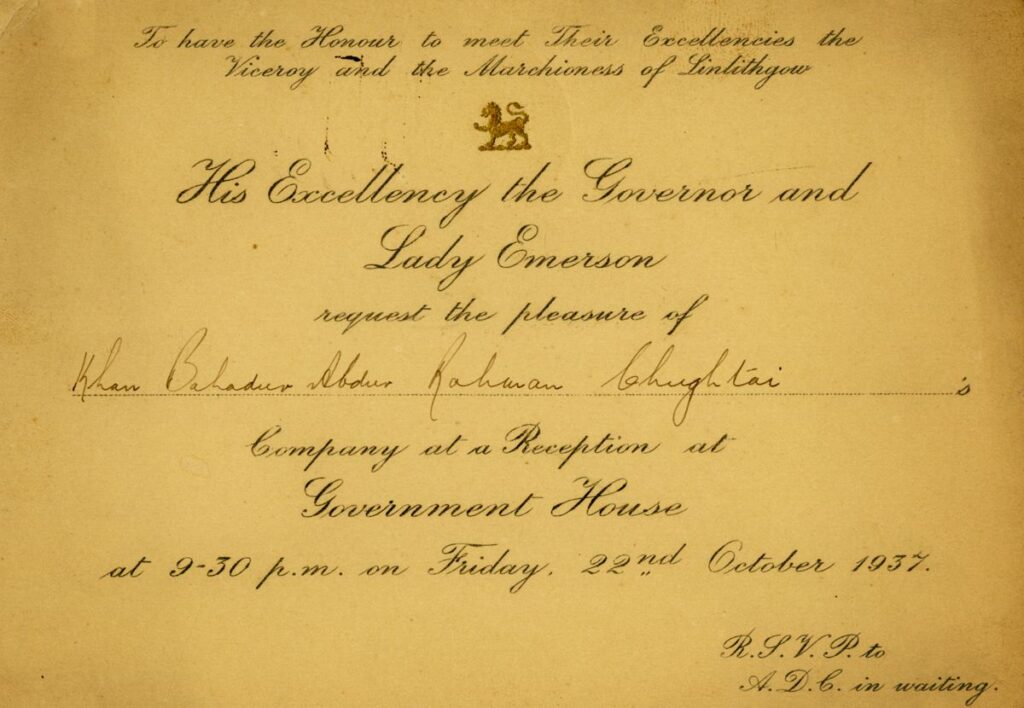 To have the Honour to meet Their Excellencies the
Viceroy and the Marchioness of Linlithgow
His Excellency the Governor and
Lady Emerson
request the pleasure of
Khan Bahadur Abdur Rahman Chughtai 's
Company at a Reception at
Government House
at 9-30 p.m. on Friday, 22nd October 1937.
R.S.V.P. to
A.D.C. in waiting.